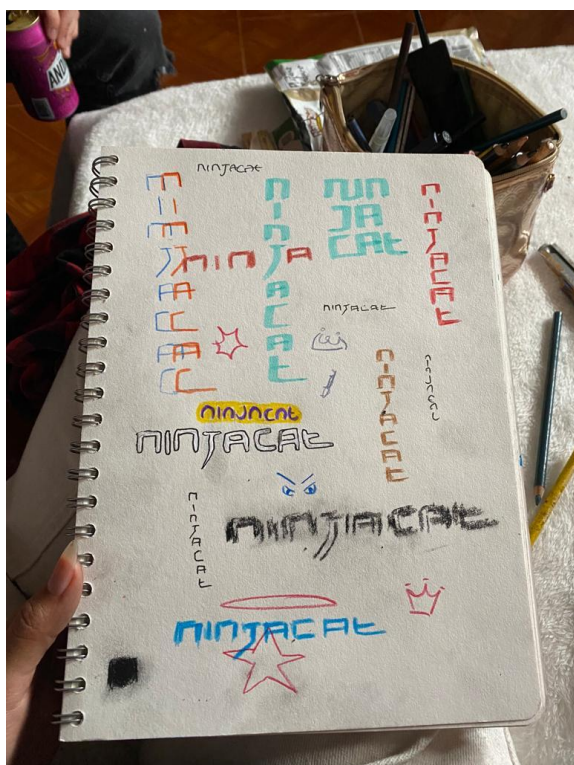 AND
NINJACAT
NINJACAT
NINJACAT
NINJACAT
NIN
JA
CAT
NINJACAT
NINJA
NINJACAT
NINJACAT
NINJACAT
NINJACAT
NINJACAT
NINJACAT
NINJACAT
NINJACAT